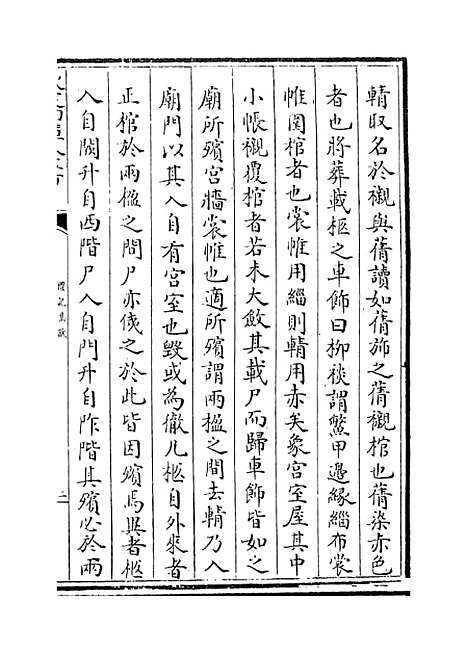 輤取名於襯與蒨讀如蒨旆之蒨襯棺也蒨染赤色
者也將葬載柩之車飾曰柳裧謂鱉甲邊緣緇布裳
帷圍棺者也裳帷用緇則輤用赤矣象宮室屋其中
小帳襯覆棺者若未大斂其載尸而歸車飾皆如之
廟所殯宮牆裳帷也適所殯謂兩楹之間去輤乃入
廟門以其入自有宮室也毀或為徹凡柩自外來者
正棺於兩楹之間尸亦侇之於此皆因殯焉異者柩
入自闕升自西階尸入自門升自阼階其殯必於兩
禮記集說
二